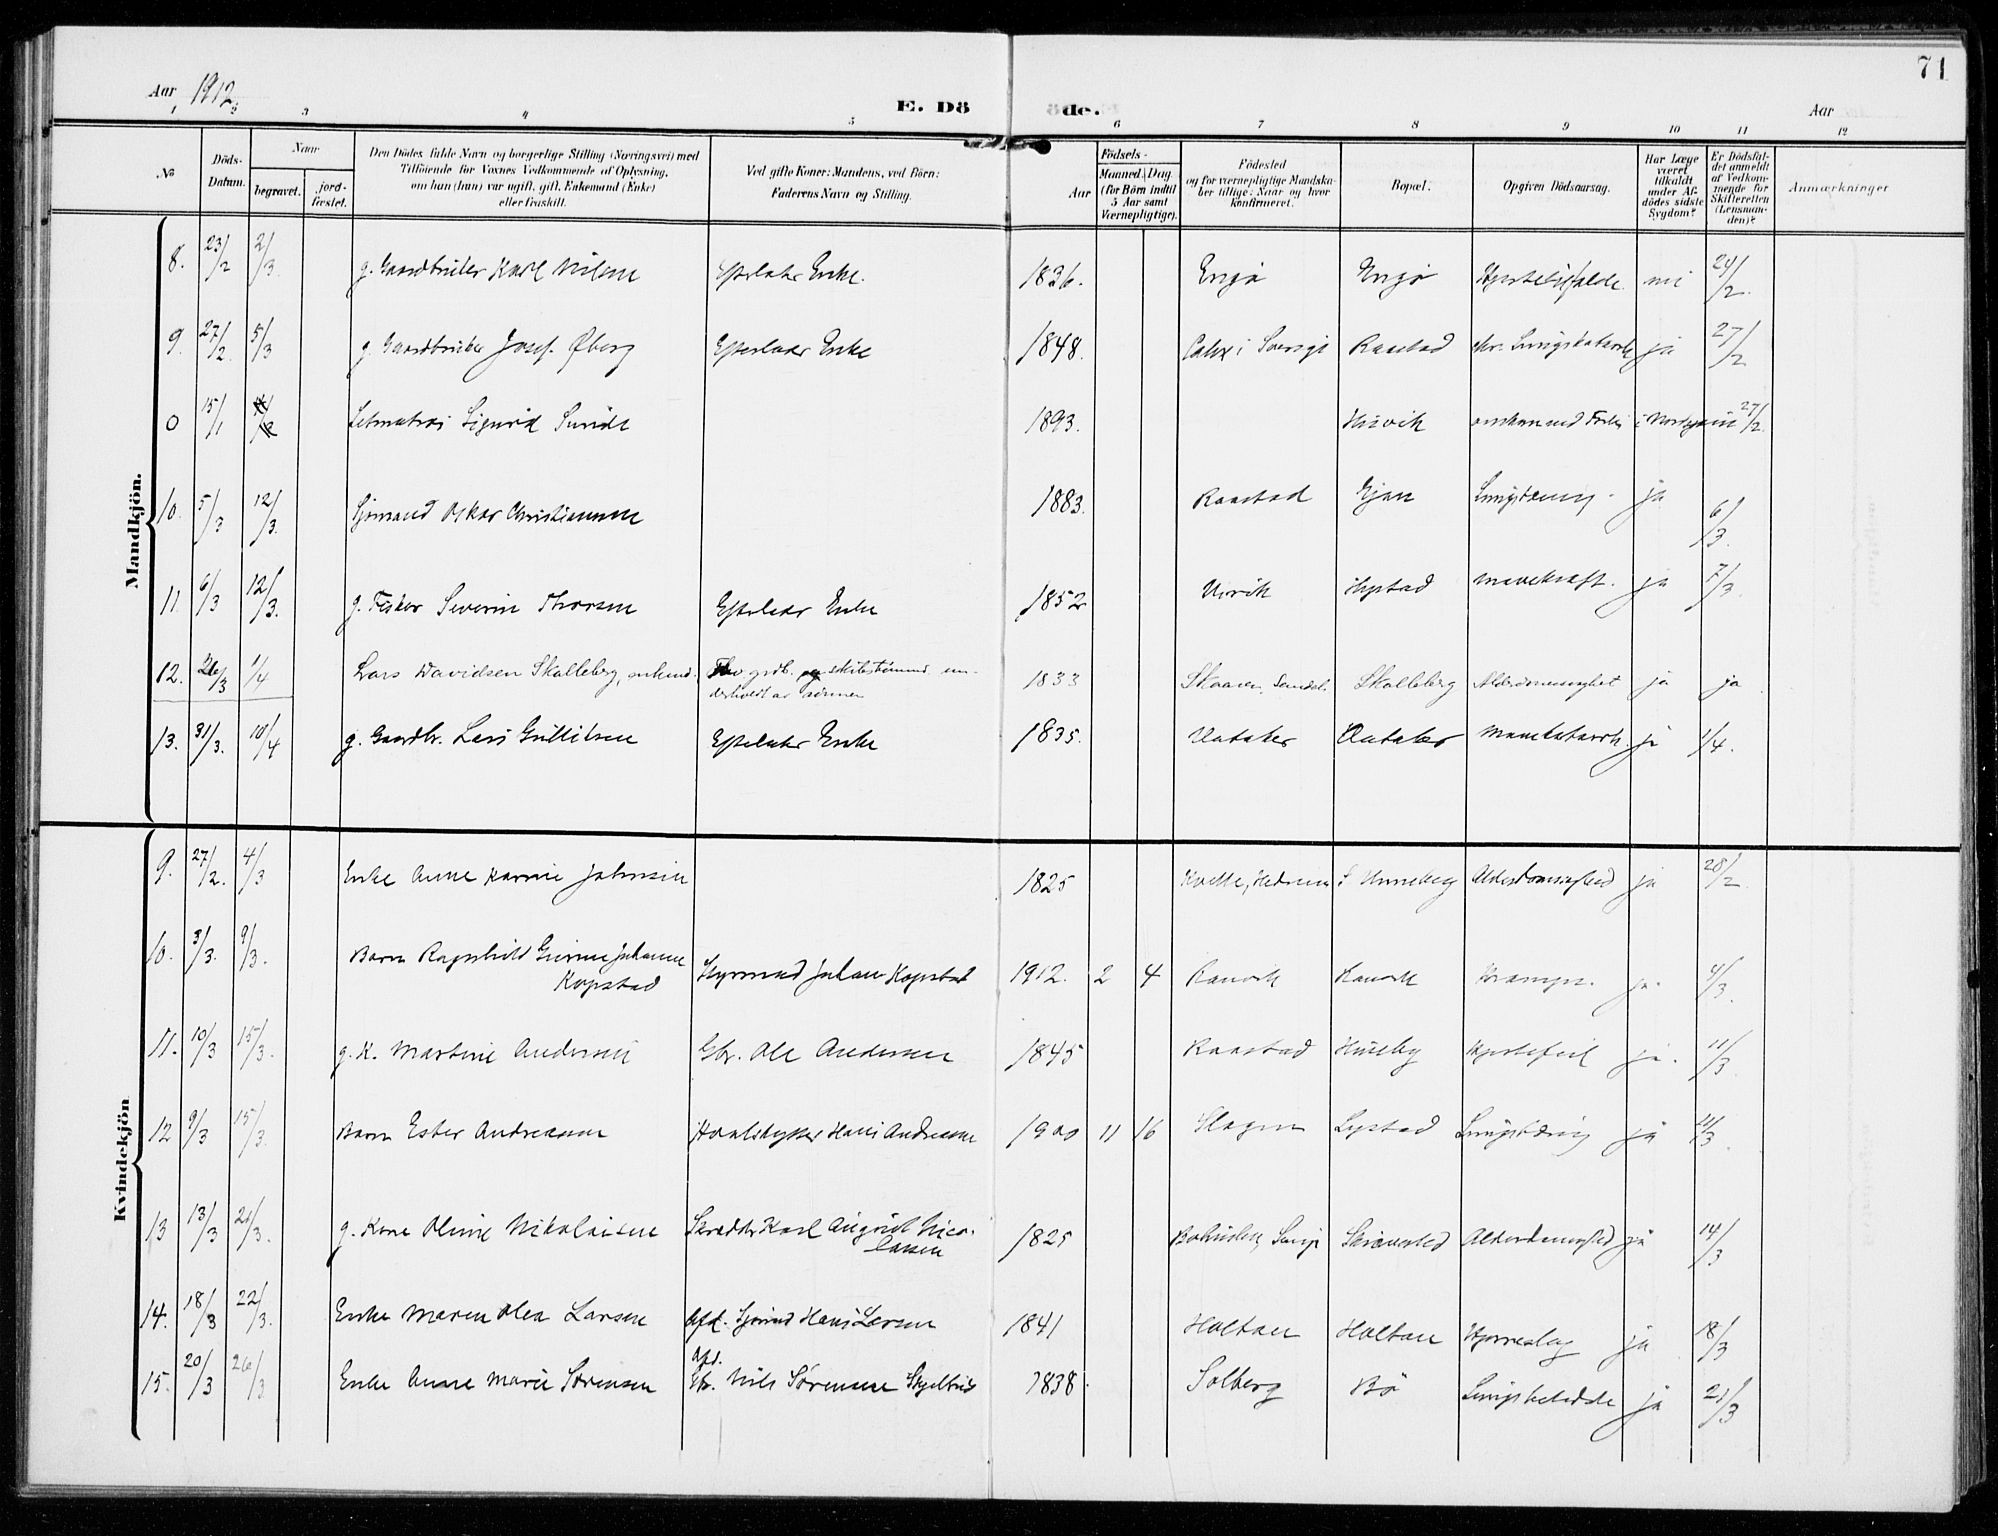 71
Aar 1912. E. Dö de. Aar
1 2 3 4 5 6 7 8 9 10 11 12
No Döds-Datum. Naar begravet. jord-fæstet. Den Dödes fulde Navn og borgerlige Stilling (Næringsvei) med Tilföiende for Voxnes Vedkommende af Oplysning, om han (hun) var ugift, gift, Enkemand (Enke) eller fraskilt. Ved gifte Koner: Mandens, ved Börn: Faderens Navn og Stilling. Aar Födsels- Maaned. Dag. (for Börn indtil 5 Aar samt Værnepligtige). Födested og for værnepligtige Mandskaber tillige: Naar og hvor konfirmeret. Bopæl. Opgiven Dödsaarsag. Har Læge været tilkaldt under Afdödes sidste Sygdom? Er Dödsfaldet anmeldt af Vedkommende for Skifteretten (Lensmanden)? Anmærkninger
Mandkjön.
8. 23/2 2/3 g. Gaardbruker Karl Nilsen Efterlater Enke. 1836. Engø Engø nei 24/2
9. 27/2. 5/3 g. Gaardbruker Josef Øberg Efterlader Enke 1848. i Sverige Raastad chr. Lungekatarrh ja 27/2
0 15/1 Letmatros Sigurd Sunde 1893. omkom ved Forlis i Nordsjøen 27/2
10. 5/3 12/3. Sjømand Oskar Christiansen 1883. Raastad Gjøn ja 6/3.
11. 6/3 12/3. g. Fisker Severin Thorsen Efterlader Enke 1852 ja 7/3
12. 26/3 1/4 Lars Davidsen Skalleberg, enkemd. Fhv. grdb. og skibstømmerm. un-
derholdt av sønnen 1833 Skaaren, Sandeh. Skalleberg Alderdomssvaghet ja ja
13. 31/3. 10/4 g. Gaardbr. Lars Gullilsen Efterlater Enke 1835. Aataker Aataker Mavekatarrh. ja 1/4.
Kvindekjön
9. 27/2. 4/3 Enke Anne Karine Johnsen 1825 Kvelle, Hedrum Unneberg Alderdomssvaghed ja 28/2
10. 3/3. 9/3. Barn Ragnhild Johanne
Kopstad Styrmand Johan Kopstad 1912. 2 4 Ranvik Ranvik Krampe. ja. 4/3.
11. 10/3 15/3. g. K. Martine Andersen Gbr. Ole Andersen 1845 Raastad Huseby Hjertefeil ja. 11/3
12 9/3 15/3. Barn Ester Andreassen Hvalskytter Hans Andreassen 1900 11 16 Slagen Lystad ja 11/3
13 13/3 21/3. g. Kone Oline Nikolaisen Skrædder Karl August Nico-
laisen 1825 Bohuslen, Alderdomssvaghed ja 14/3
14. 18/3 22/3. Enke Maren Olea Larsen Afd. Sjømd Hans Larsen 1841 Holtan Holtan Hjerneslag ja 18/3
15. 20/3 26/3 Enke Anne Marie Sørensen afd.
Gbr. Nils Sørensen 1838. Solberg Bø ja 21/3